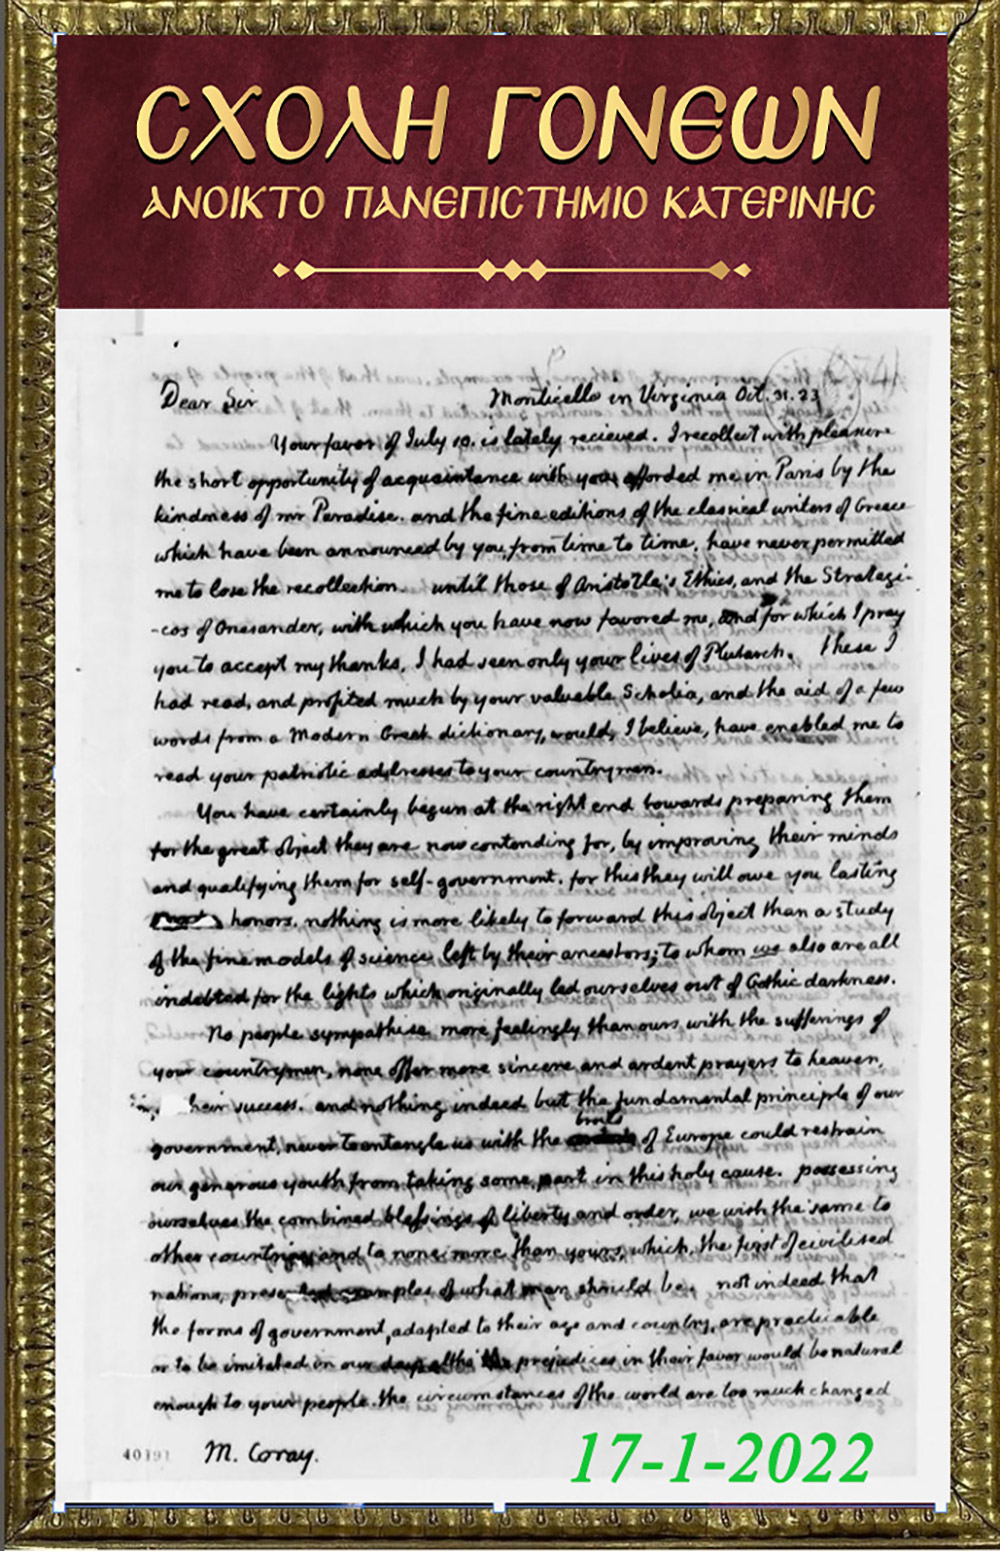 ΣΧΟΛΗ ΓΟΝΕΩΝ
ΑΝΟΙΚΤΟ ΠΑΝΕΠΙΣΤΗΜΙΟ ΚΑΤΕΡΙΝΗΣ
Dear Sir Monticello in Virginia Oct. 31. 23
Your favor of July 10. is lately recieved. I recollect with pleasure
the short opportunity of acquaintance with you afforded me in Paris by the
kindness of mr Paradise. and the fine editions of the classical writers of Greece
which have been announced by you, from time to time, have never permitted
me to lose the recollection. until those of Aristotle's Ethics, and the Strategi-
-cos of Onesander, with which you have now favored me, and for which I pray
you to accept my thanks, I had seen only your lives of Plutarch. These I
had read, and profited much by your valuable Scholia, and the aid of a few
words from a Modern Greek dictionary, would, I believe, have enabled me to
read your patriotic addresses to your countrymen.
You have certainly begun at the right end towards preparing them
for the great object they are now contending for, by improving their minds
and qualifying them for self-government. for this they will owe you lasting
honors. nothing is more likely to forward this object than a study
of the fine models of science left by their ancestors; to whom we also are all
indebted for the lights which originally led ourselves out of Gothic darkness.
No people sympathise more feelingly than ours with the sufferings of
your countrymen, none offer more sincere and ardent prayers to heaven
heir success. and nothing indeed but the fundamental principle of our
government, never to entangle us with the broils of Europe could restrain
our generous youth from taking some part in this holy cause. possessing
ourselves the combined blessings of liberty and order, we wish the same to
other countries and to none more than yours, which, the first of civilised
nations, presented examples of what man should be. not indeed that
the forms of government, adapted to their age and country, are practicable
or to be imitated in our day, altho' prejudices in their favor would be natural
enough to your people. the circumstances of the world are too much changed
40191 M. Coray.
17-1-2022